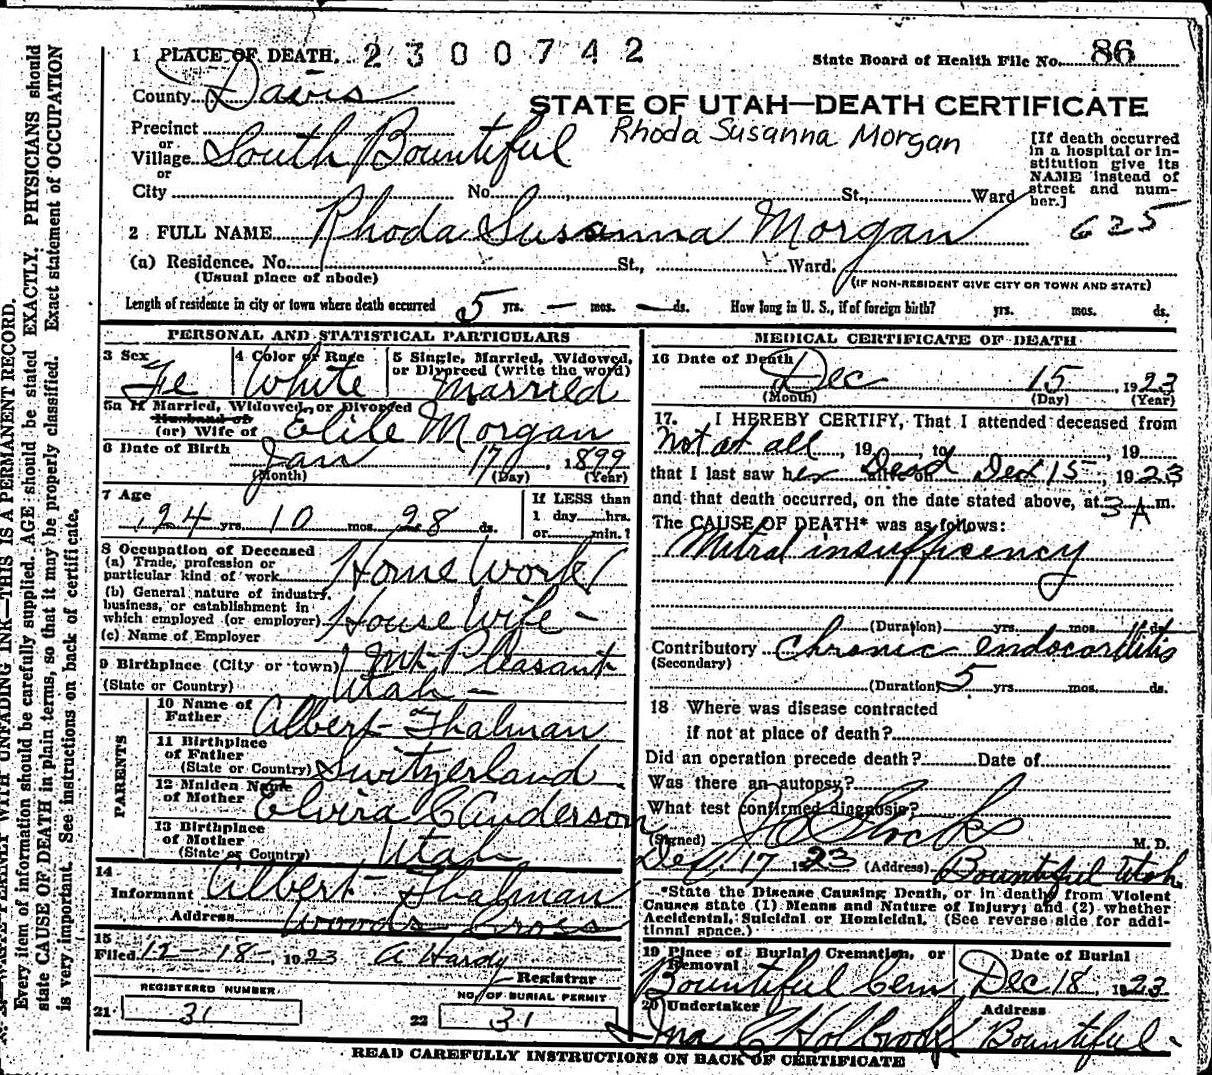 1 PLACE OF DEATH. 2300742
State Board of Health File No. 86
County Davis
STATE OF UTAH—DEATH CERTIFICATE
Rhoda Susanna Morgan
Precinct
or
Village South Bountiful
or
City No. St., Ward
[If death occurred
in a hospital or in-
stitution give its
NAME instead of
street and num-
ber.]
625
2 FULL NAME Rhoda Susanna Morgan
(a) Residence. No. St., Ward.
(Usual place of abode)
(IF NON-RESIDENT GIVE CITY OR TOWN AND STATE)
Length of residence in city or town where death occurred 5 yrs. — mos. — ds. How long in U. S., if of foreign birth? yrs. mos. ds.
PERSONAL AND STATISTICAL PARTICULARS
3 Sex
Fe
4 Color or Race
White
5 Single, Married, Widowed,
or Divorced (write the word)
Married
5a If Married, Widowed, or Divorced
Husband of
(or) Wife of Morgan
6 Date of Birth Jan 17, 1899
(Month) (Day) (Year)
7 Age
24 yrs. 10 mos. 28 ds.
If LESS than
1 day hrs.
or min.?
8 Occupation of Deceased
(a) Trade, profession or
particular kind of work Home Work
(b) General nature of industry,
business, or establishment in
which employed (or employer) House Wife -
(c) Name of Employer
9 Birthplace (City or town) Mt. Pleasant
(State or Country) Utah -
PARENTS
10 Name of
Father Albert Thalman
11 Birthplace
of Father
(State or Country) Switzerland
12 Maiden Name
of Mother Elvira C Anderson
13 Birthplace
of Mother
(State or Country) Utah
14
Informant Albert Thalman
Address Woods Cross
15
Filed 12-18-, 1923 A Hardy
Registrar
REGISTERED NUMBER
21 31
NO. OF BURIAL PERMIT
22 31
MEDICAL CERTIFICATE OF DEATH
16 Date of Death
Dec 15, 1923
(Month) (Day) (Year)
17. I HEREBY CERTIFY, That I attended deceased from
Not at all, 19, to, 19
that I last saw her Dead alive on Dec 15, 1923
and that death occurred, on the date stated above, at 3 A m.
The CAUSE OF DEATH* was as follows:
Mitral insufficency
(Duration) yrs. mos. ds.
Contributory Chronic endocarditis
(Secondary)
(Duration) 5 yrs. mos. ds.
18 Where was disease contracted
if not at place of death?
Did an operation precede death? Date of
Was there an autopsy?
What test confirmed diagnosis?
(Signed) M. D.
Dec 17 1923 (Address) Bountiful Utah
*State the Disease Causing Death, or in deaths from Violent
Causes state (1) Means and Nature of Injury; and (2) whether
Accidental, Suicidal or Homicidal. (See reverse side for addi-
tional space.)
19 Place of Burial, Cremation, or
Removal
Bountiful Cem
Date of Burial
Dec 18, 1923
20 Undertaker
C Holbrook
Address
Bountiful -
READ CAREFULLY INSTRUCTIONS ON BACK OF CERTIFICATE
WRITE PLAINLY WITH UNFADING INK—THIS IS A PERMANENT RECORD.
Every item of information should be carefully supplied. AGE should be stated EXACTLY. PHYSICIANS should
state CAUSE OF DEATH in plain terms, so that it may be properly classified. Exact statement of OCCUPATION
is very important. See instructions on back of certificate.